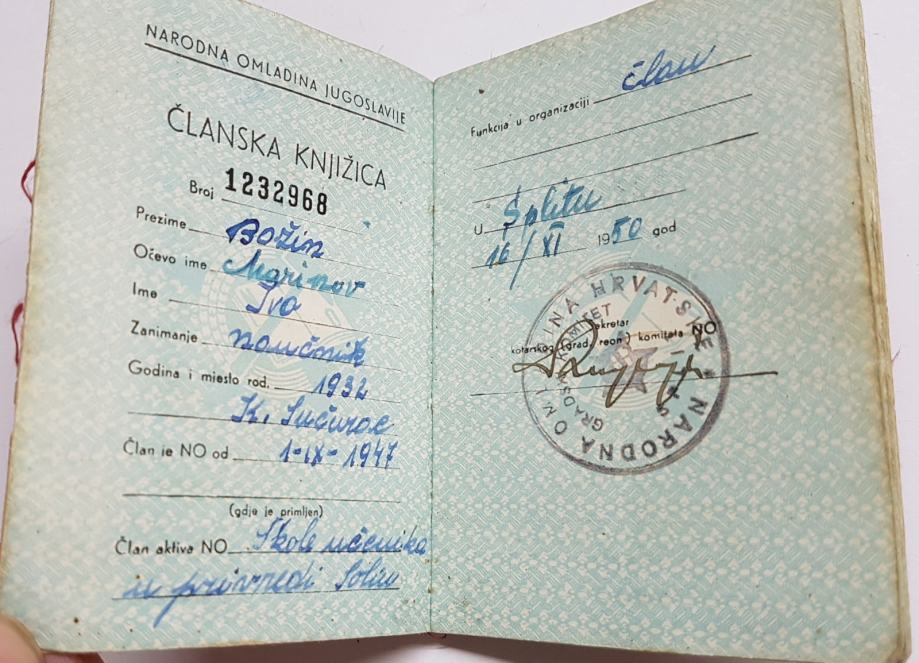 NARODNA OMLADINA JUGOSLAVIJE
ČLANSKA KNJIŽICA
Broj 1232968
Prezime Božin
Očevo ime Marinov
Ime Ivo
Zanimanje naučnik
Godina i mjesto rod. 1932
K. Sućurac
Član je NO od 1-IX-1947
(gdje je primljen)
Član aktiva NO Škole učenika
u privredi Solin
Funkcija u organizaciji član
U Splitu
16/XI 1950 god
Sekretar
kotarskog (grad., reon.) komiteta NO
NARODNA OMLADINA HRVATSKE
GRADSKI KOMITET